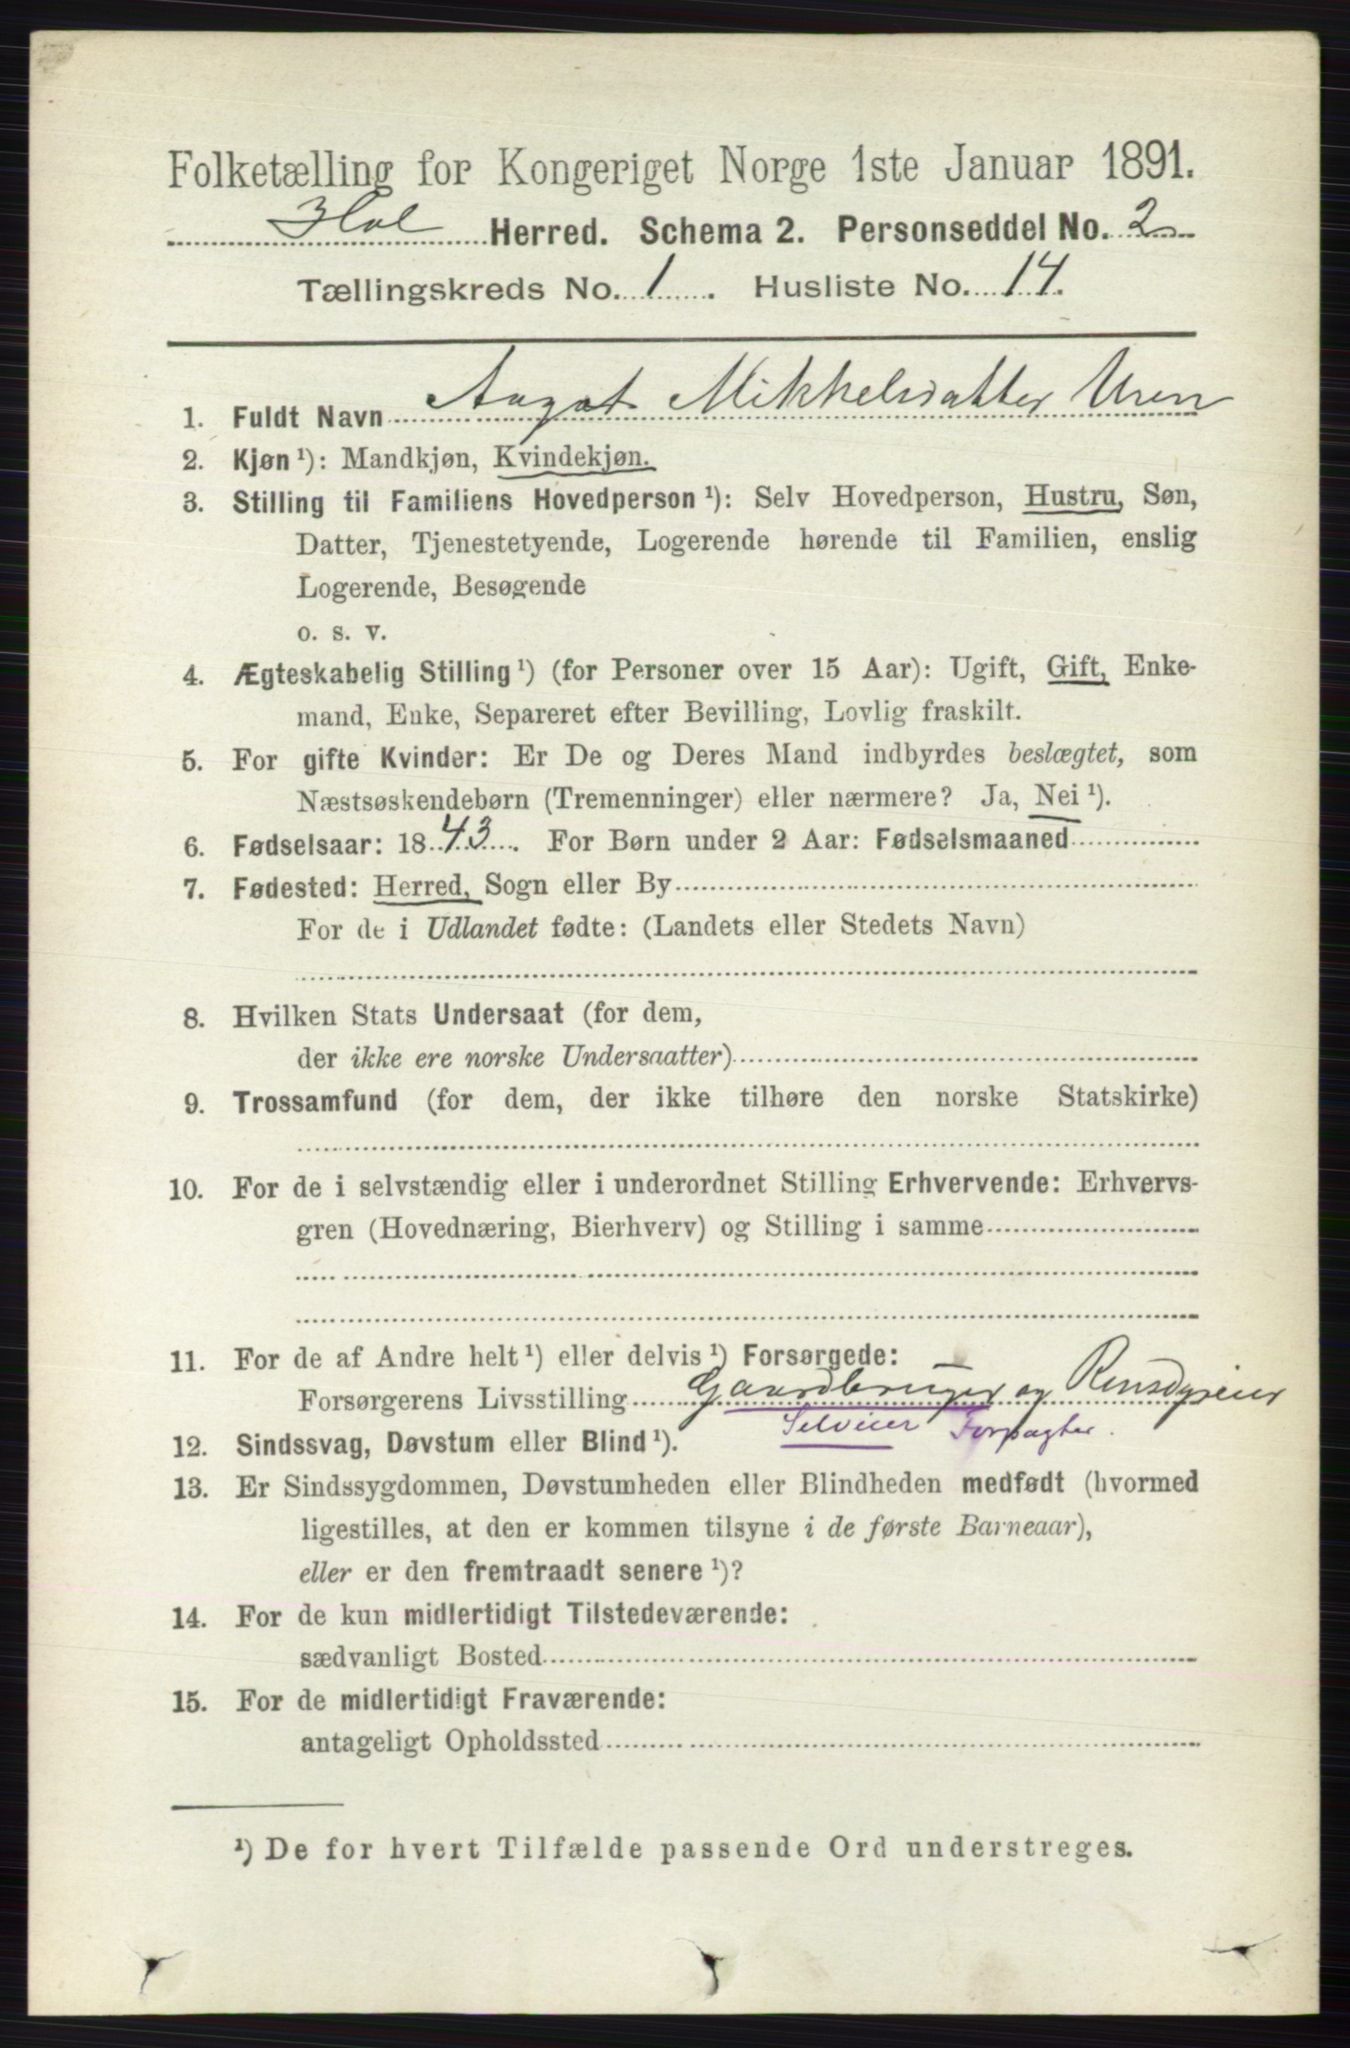 Folketælling for Kongeriget Norge 1ste Januar 1891.
Hol Herred. Schema 2. Personseddel No. 2
Tællingskreds No. 1. Husliste No. 14.
1. Fuldt Navn Aagot Mikkelsdatter Uren
2. Kjøn ¹): Mandkjøn, Kvindekjøn.
3. Stilling til Familiens Hovedperson ¹): Selv Hovedperson, Hustru, Søn,
Datter, Tjenestetyende, Logerende hørende til Familien, enslig
Logerende, Besøgende
o. s. v.
4. Ægteskabelig Stilling ¹) (for Personer over 15 Aar): Ugift, Gift, Enke-
mand, Enke, Separeret efter Bevilling, Lovlig fraskilt.
5. For gifte Kvinder: Er De og Deres Mand indbyrdes beslægtet, som
Næstsøskendebørn (Tremenninger) eller nærmere? Ja, Nei ¹).
6. Fødselsaar: 1843. For Børn under 2 Aar: Fødselsmaaned
7. Fødested: Herred, Sogn eller By
For de i Udlandet fødte: (Landets eller Stedets Navn)
8. Hvilken Stats Undersaat (for dem,
der ikke ere norske Undersaatter)
9. Trossamfund (for dem, der ikke tilhøre den norske Statskirke)
10. For de i selvstændig eller i underordnet Stilling Erhvervende: Erhvervs-
gren (Hovednæring, Bierhverv) og Stilling i samme
11. For de af Andre helt ¹) eller delvis ¹) Forsørgede:
Forsørgerens Livsstilling Gaardbruger og Rensdyreier
Selveier Forpagter.
12. Sindssvag, Døvstum eller Blind ¹).
13. Er Sindssygdommen, Døvstumheden eller Blindheden medfødt (hvormed
ligestilles, at den er kommen tilsyne i de første Barneaar),
eller er den fremtraadt senere ¹)?
14. For de kun midlertidigt Tilstedeværende:
sædvanligt Bosted
15. For de midlertidigt Fraværende:
antageligt Opholdssted
¹) De for hvert Tilfælde passende Ord understreges.